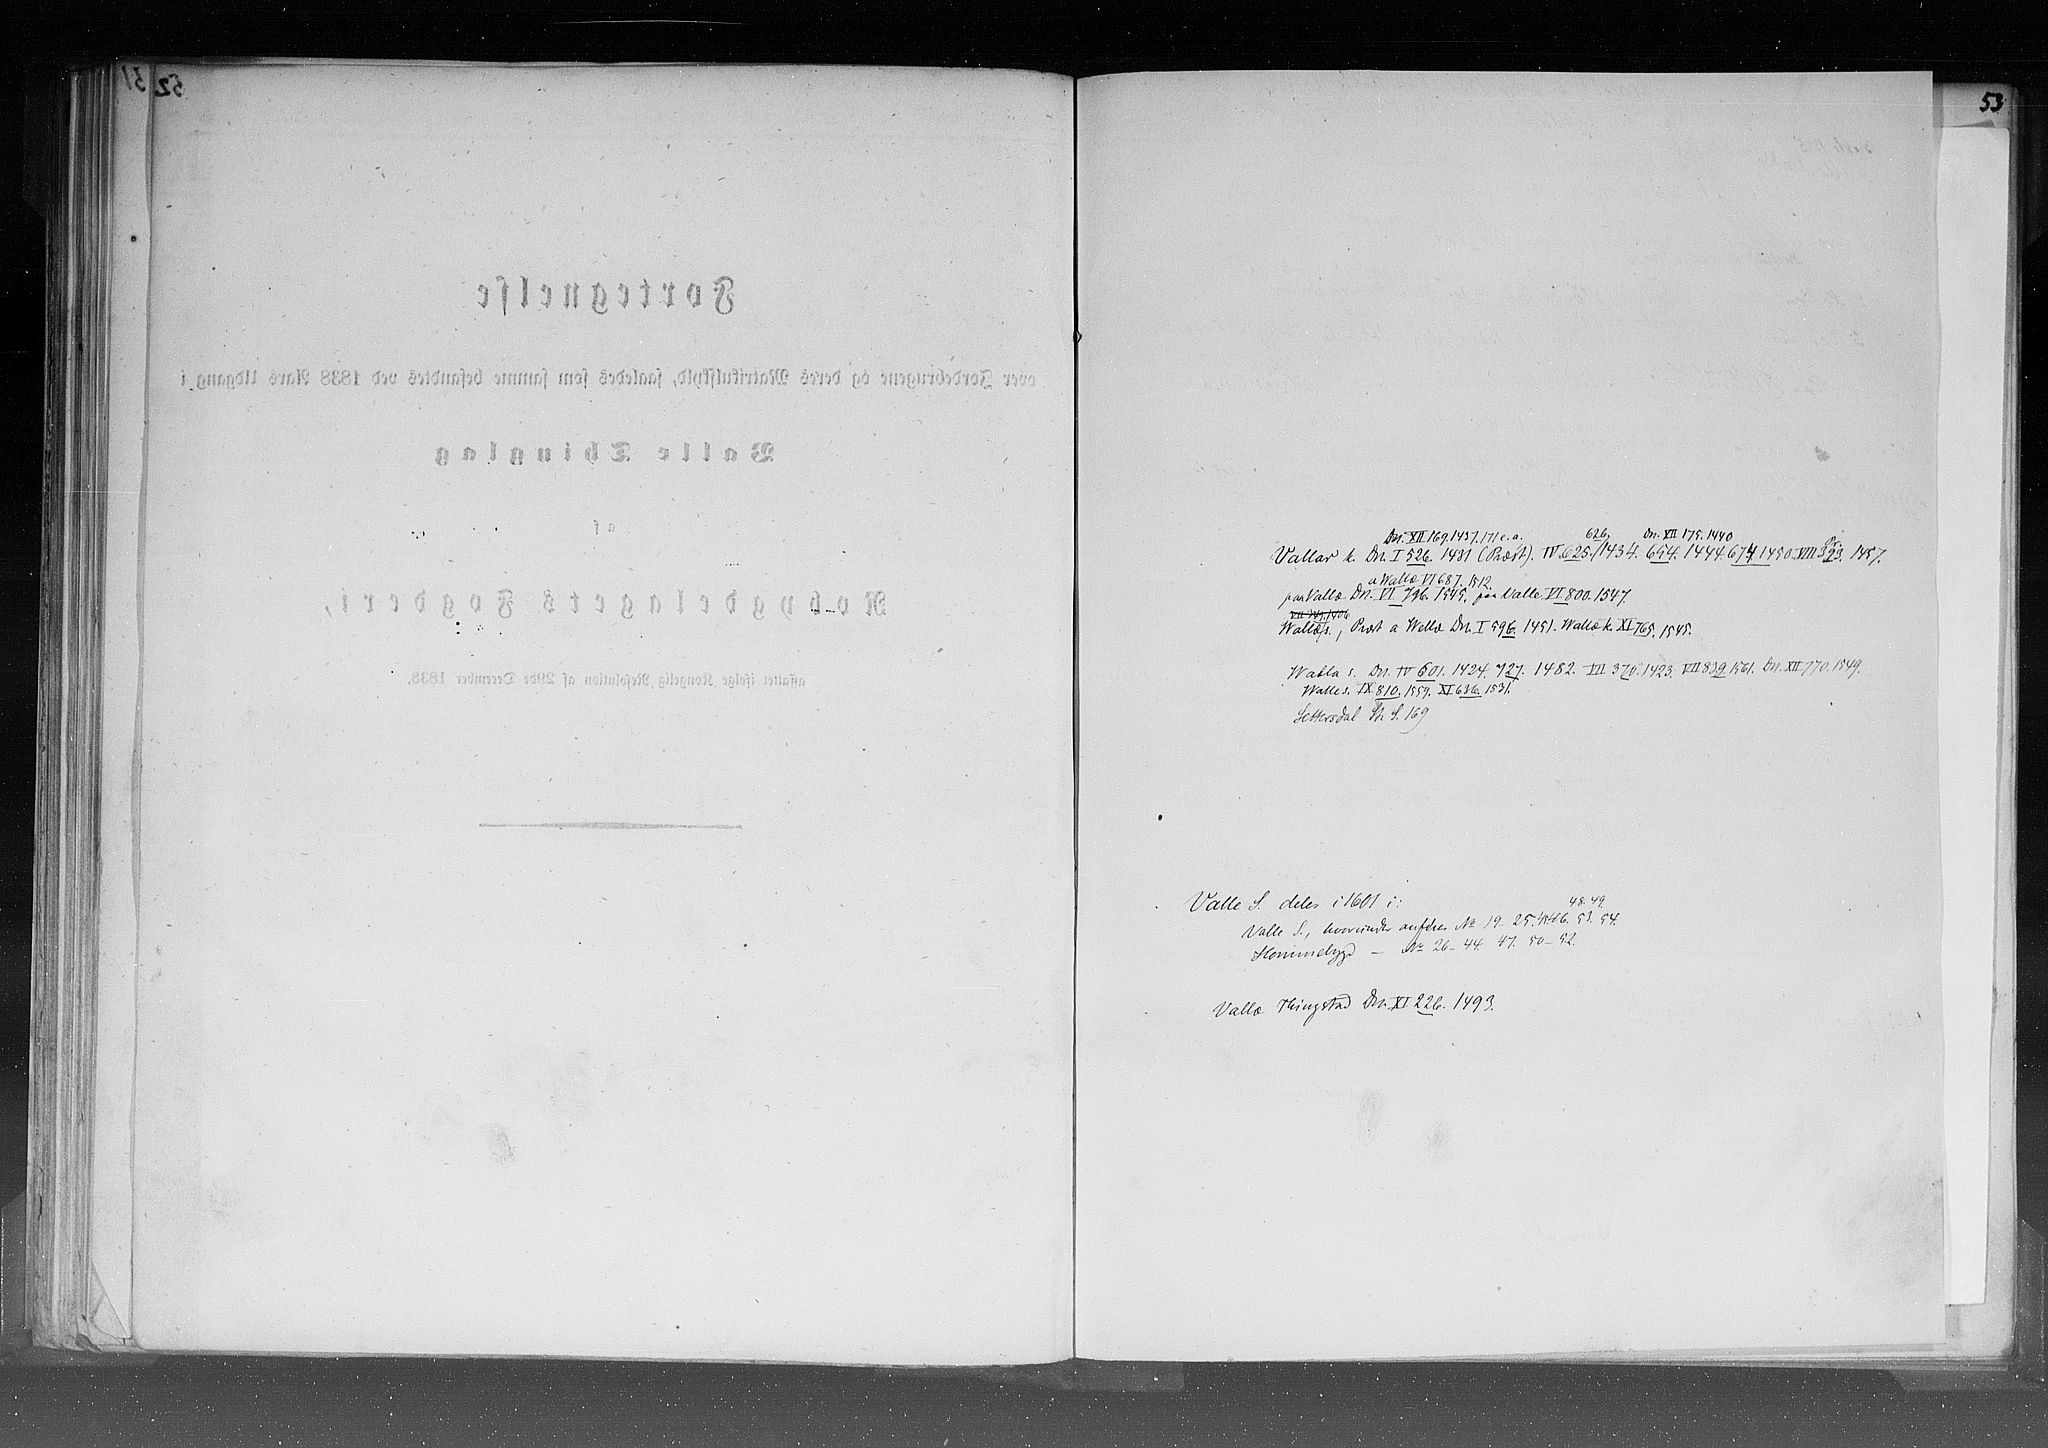 51
52
53
Fortegnelse
over Jordebrugene og deres Matrikulskyld, saaledes som samme befandtes ved 1838 Aars Udgang i
Valle Thinglag
af
Robygdelagets Fogderi,
affattet ifølge Kongelig Resolution af 29de December 1838.
Dn. XII 169. 1437. 171 c. a. 626, Dn. XII 175. 1440
Vallar k. Dn. I 526. 1431 (Præst). IV 625. 1434. 654. 1444. 674. 1450. VIII 393. 1457.
a Wallæ VI 687. 1512.
paa Vallæ Dn. VI 746. 1545. paa Valle VI 800. 1547.
Wallæ s., Præst a Wellæ Dn. I 596. 1451. Wallæ k. XI 765. 1545.
Walla s. Dn. IV 601. 1424. 727. 1482. VII 370. 1423. VII 839. 1561. Dn. XII 770. 1549.
Walle s. IX 810. 1559. XI 636. 1531.
Settersdal St. S. 169
Valle S. deles i 1601 i:
48. 49.
Valle S., hvorunder anføres No 19-25. 46. 53. 54.
Hommebygd — No 26-44. 47. 50-52.
Vallæ Thingstad Dn. XI 226. 1493.